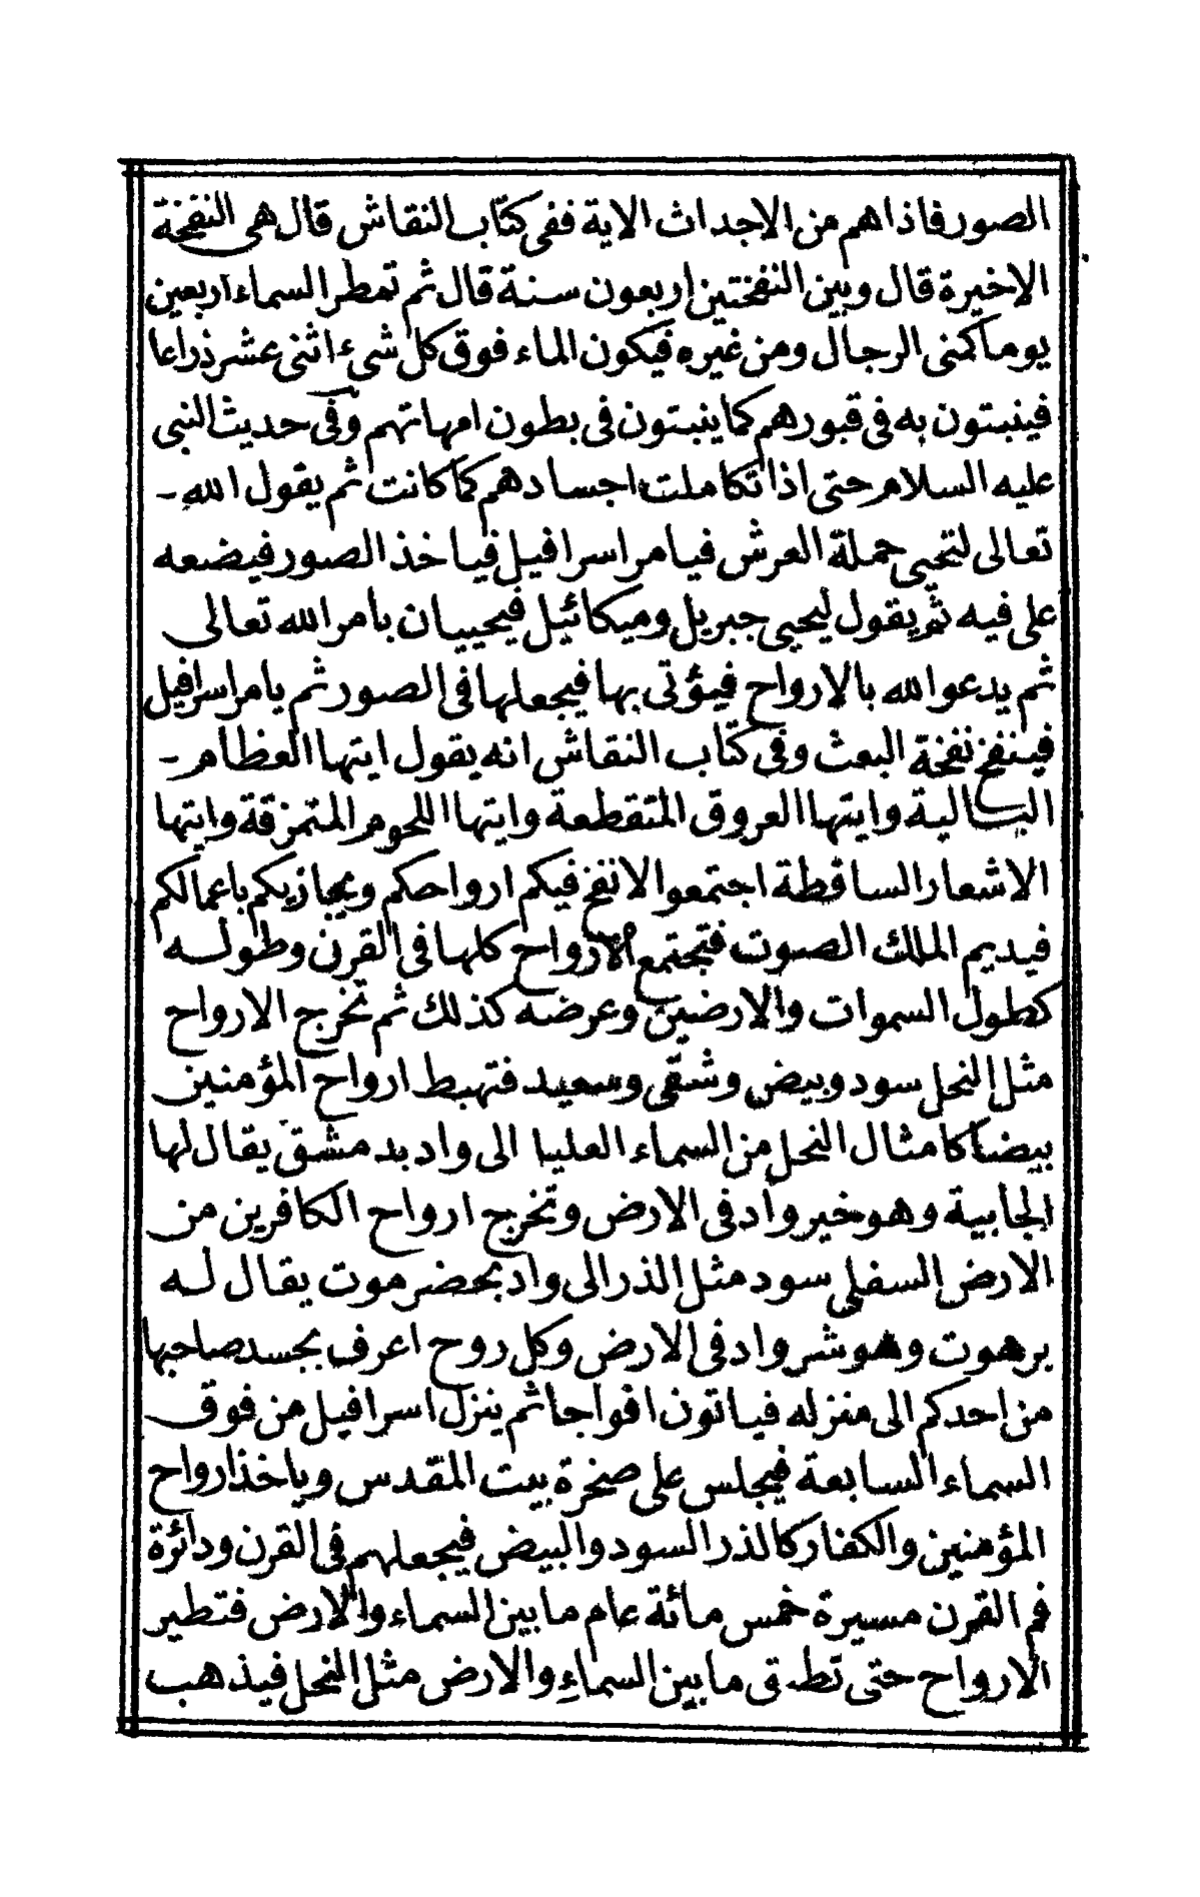 الصور فاذا هم من الاجداث الاية ففى كتاب النقاش قال هى النفخة
الاخيرة قال وبين النفختين اربعون سنة قال ثم تمطر السماء اربعين
يوما كمنى الرجال ومن غيره فيكون الماء فوق كل شىء اثنى عشر ذراعا
فينبتون به فى قبورهم كما ينبتون فى بطون امهاتهم وفى حديث النبى
عليه السلام حتى اذا تكاملت اجسادهم كما كانت ثم يقول الله -
تعالى لتحيى حملة العرش فيامر اسرافيل فياخذ الصور فيضعه
على فيه ثم يقول ليحيى جبريل وميكائيل فيحييان بامر الله تعالى
ثم يدعو الله بالارواح فيؤتى بها فيجعلها فى الصور ثم يامر اسرافيل
فينفخ نفخة البعث وفى كتاب النقاش انه يقول ايتها العظام -
البالية وايتها العروق المتقطعة وايتها اللحوم المتمزقة وايتها
الاشعار الساقطة اجتمعوا لانفخ فيكم ارواحكم ويجازيكم باعمالكم
فيديم الملك الصوت فتجتمع الارواح كلها فى القرن وطوله
كطول السموات والارضين وعرضه كذلك ثم تخرج الارواح
مثل النحل سود وبيض وشقى وسعيد فتهبط ارواح المؤمنين
بيضا كامثال النحل من السماء العليا الى واد بدمشق يقال لها
الجابية وهو خير واد فى الارض وتخرج ارواح الكافرين من
الارض السفلى سود مثل الذر الى واد بحضرموت يقال له
برهوت وهو شر واد فى الارض وكل روح اعرف بجسد صاحبها
من احدكم الى منزله فياتون افواجا ثم ينزل اسرافيل من فوق
السماء السابعة فيجلس على صخرة بيت المقدس وياخذ ارواح
المؤمنين والكفار كالذر السود والبيض فيجعلهم فى القرن ودائرة
فم القرن مسيرة خمس مائة عام ما بين السماء والارض فتطير
الارواح حتى تطبق ما بين السماء والارض مثل النحل فيذهب